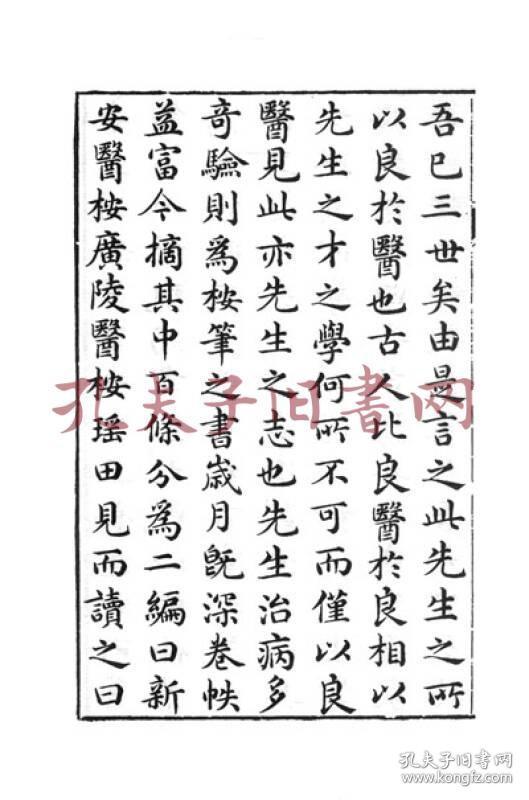 吾已三世矣由是言之此先生之所
以良於醫也古人比良醫於良相以
先生之才之學何所不可而僅以良
醫見此亦先生之志也先生治病多
奇驗則爲桉筆之書歲月既深卷帙
益富今摘其中百條分爲二編曰新
安醫桉廣陵醫桉瑶田見而讀之曰
孔夫子旧书网
孔夫子旧书网
kongfz.com